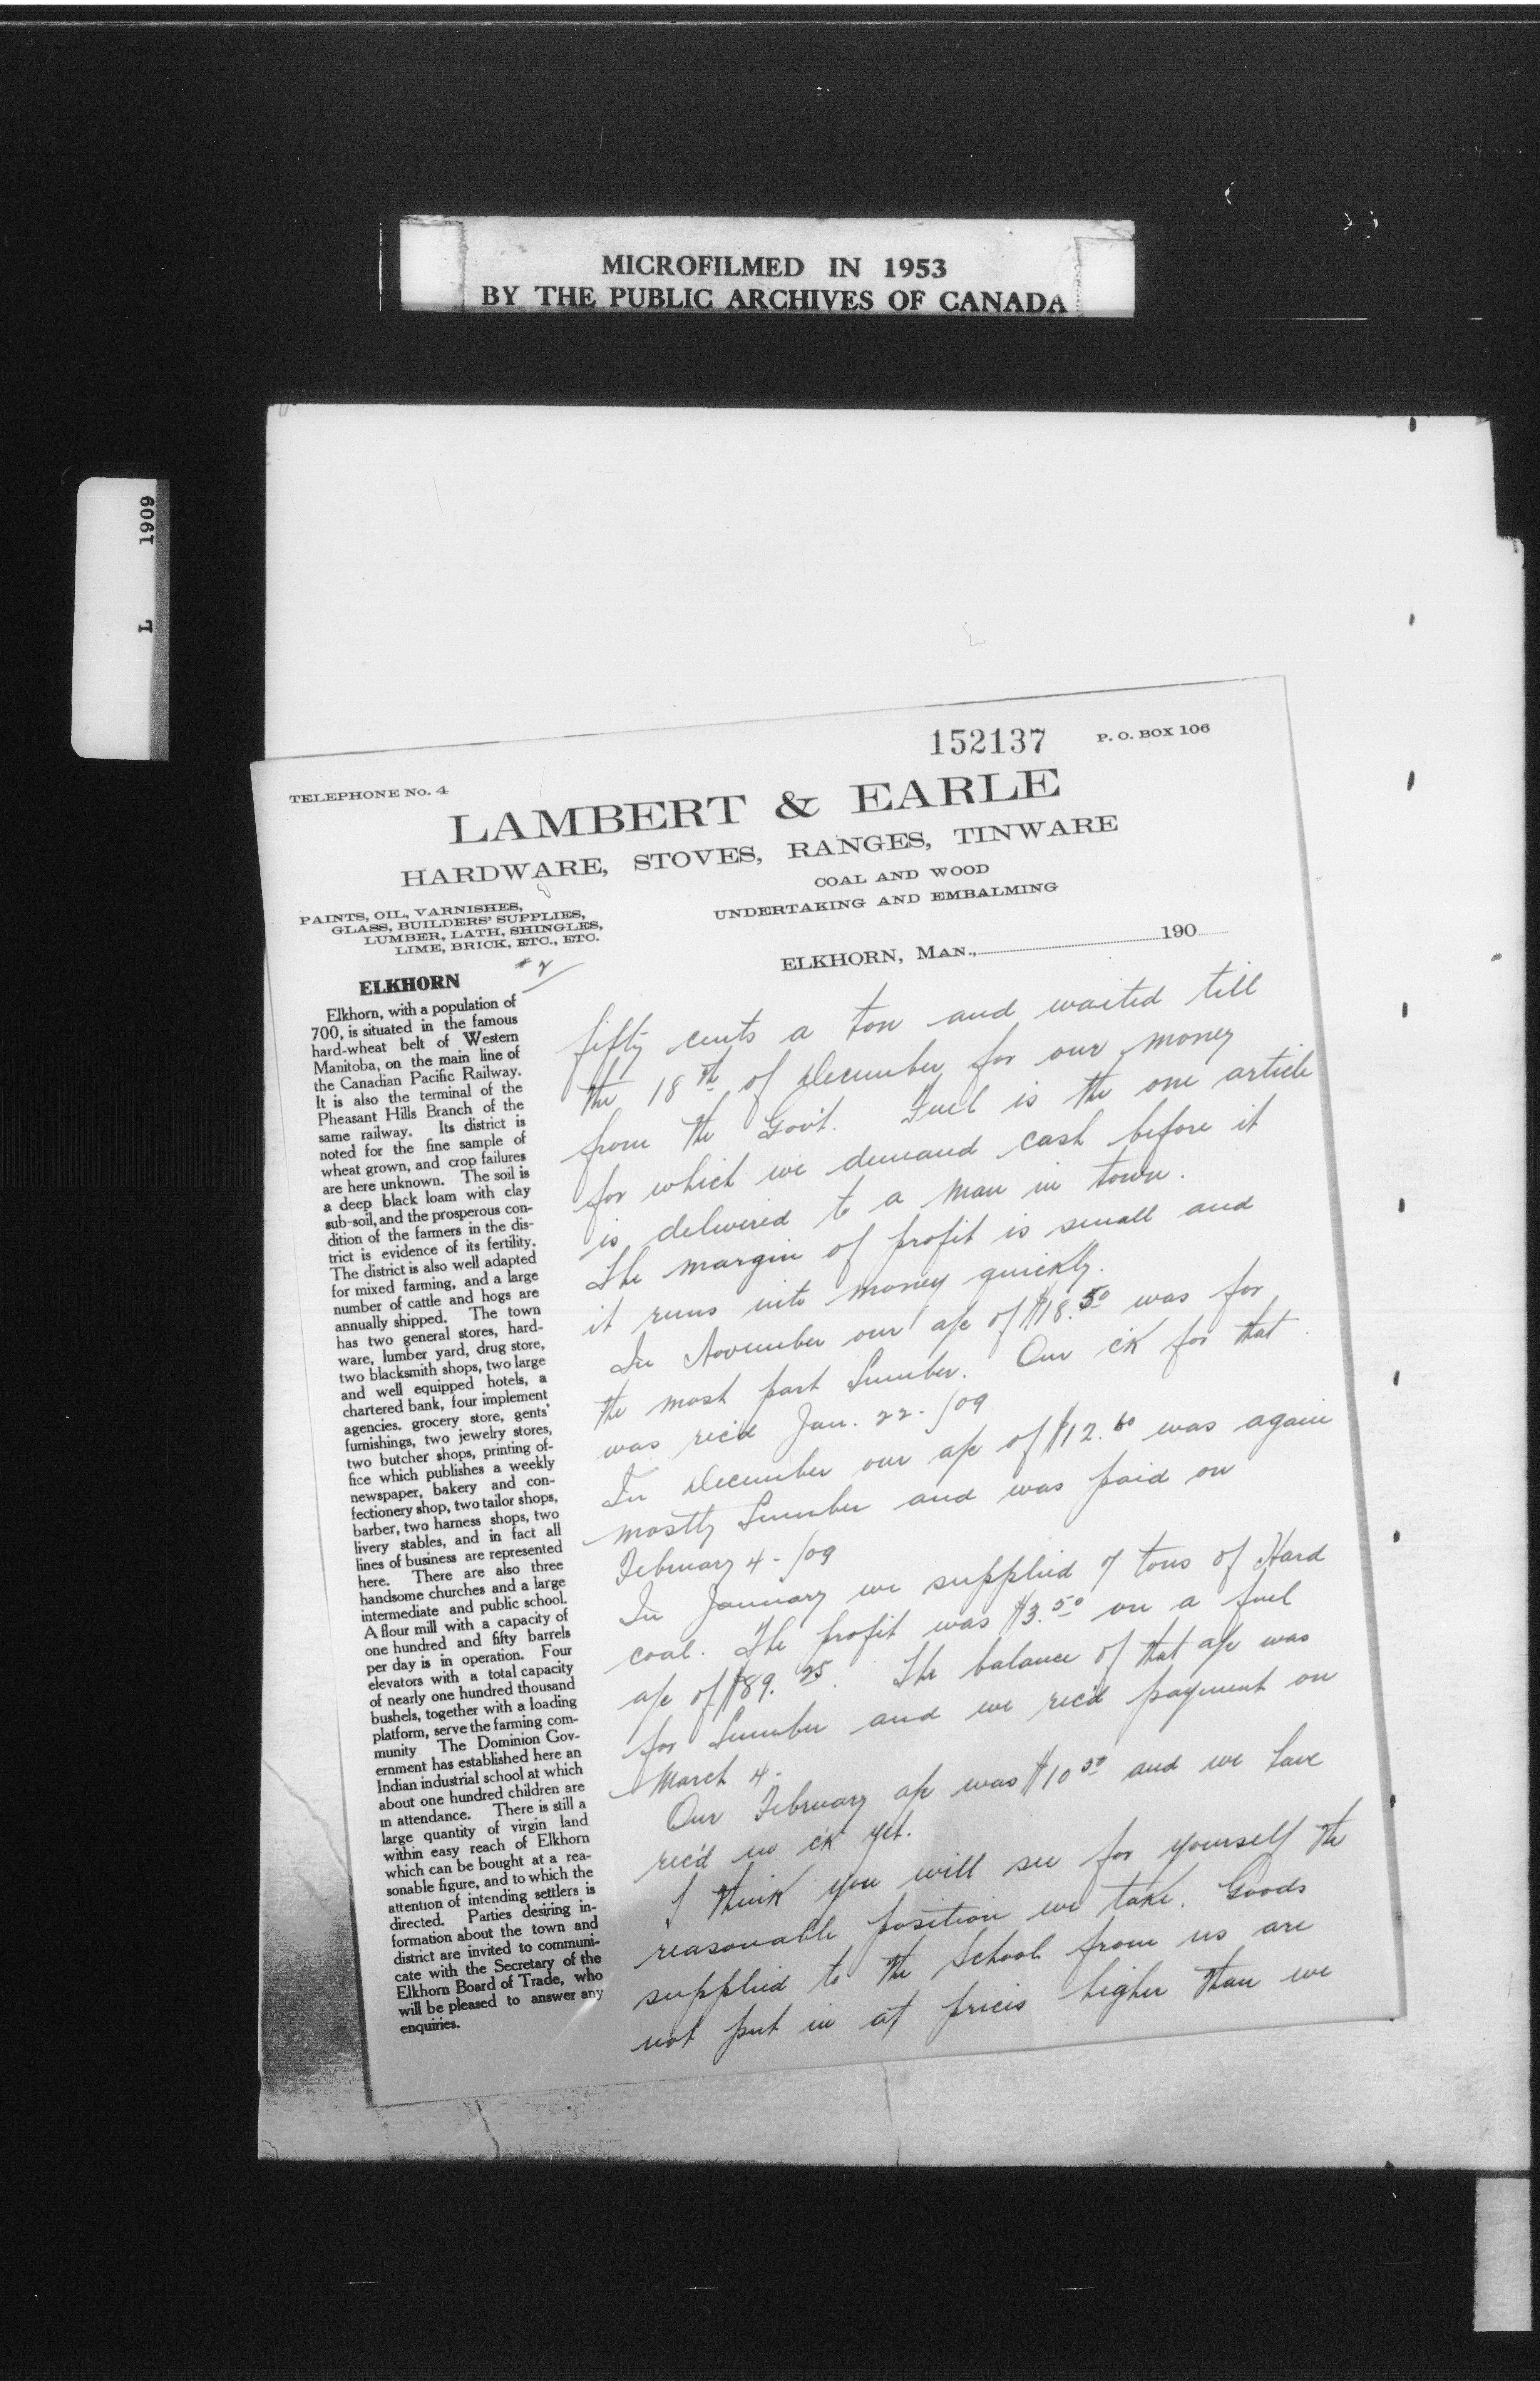 MICROFILMED IN 1953
BY THE PUBLIC ARCHIVES OF CANADA
L 1909
152137
P. O. BOX 106
TELEPHONE No. 4
LAMBERT & EARLE
HARDWARE, STOVES, RANGES, TINWARE
COAL AND WOOD
UNDERTAKING AND EMBALMING
PAINTS, OIL, VARNISHES,
GLASS, BUILDERS' SUPPLIES,
LUMBER, LATH, SHINGLES,
LIME, BRICK, ETC., ETC.
ELKHORN, MAN., 190
ELKHORN
Elkhorn, with a population of
700, is situated in the famous
hard-wheat belt of Western
Manitoba, on the main line of
the Canadian Pacific Railway.
It is also the terminal of the
Pheasant Hills Branch of the
same railway. Its district is
noted for the fine sample of
wheat grown, and crop failures
are here unknown. The soil is
a deep black loam with clay
sub-soil, and the prosperous con-
dition of the farmers in the dis-
trict is evidence of its fertility.
The district is also well adapted
for mixed farming, and a large
number of cattle and hogs are
annually shipped. The town
has two general stores, hard-
ware, lumber yard, drug store,
two blacksmith shops, two large
and well equipped hotels, a
chartered bank, four implement
agencies. grocery store, gents'
furnishings, two jewelry stores,
two butcher shops, printing of-
fice which publishes a weekly
newspaper, bakery and con-
fectionery shop, two tailor shops,
barber, two harness shops, two
livery stables, and in fact all
lines of business are represented
here. There are also three
handsome churches and a large
intermediate and public school.
A flour mill with a capacity of
one hundred and fifty barrels
per day is in operation. Four
elevators with a total capacity
of nearly one hundred thousand
bushels, together with a loading
platform, serve the farming com-
munity The Dominion Gov-
ernment has established here an
Indian industrial school at which
about one hundred children are
in attendance. There is still a
large quantity of virgin land
within easy reach of Elkhorn
which can be bought at a rea-
sonable figure, and to which the
attention of intending settlers is
directed. Parties desiring in-
formation about the town and
district are invited to communi-
cate with the Secretary of the
Elkhorn Board of Trade, who
will be pleased to answer any
enquiries.
fifty cents a ton and waited till
the 18th of December for our money
from the Gov't. Fuel is the one article
for which we demand cash before it
is delivered to a man in town.
The margin of profit is small and
it runs into money quickly.
In November our a/c of $18.50 was for
the most part Lumber. Our c'k for that
was rec'd Jan. 22 - /09
In December our a/c of $12.60 was again
mostly Lumber and was paid on
February 4 - /09
In January we supplied 7 tons of Hard
coal. The profit was $3.50 on a fuel
a/c of $89.25. The balance of that a/c was
for Lumber and we rec'd payment on
March 4.
Our February a/c was $10.50 and we have
rec'd no c'k yet.
I think you will see for yourself the
reasonable position we take. Goods
supplied to the School from us are
not put in at prices higher than we